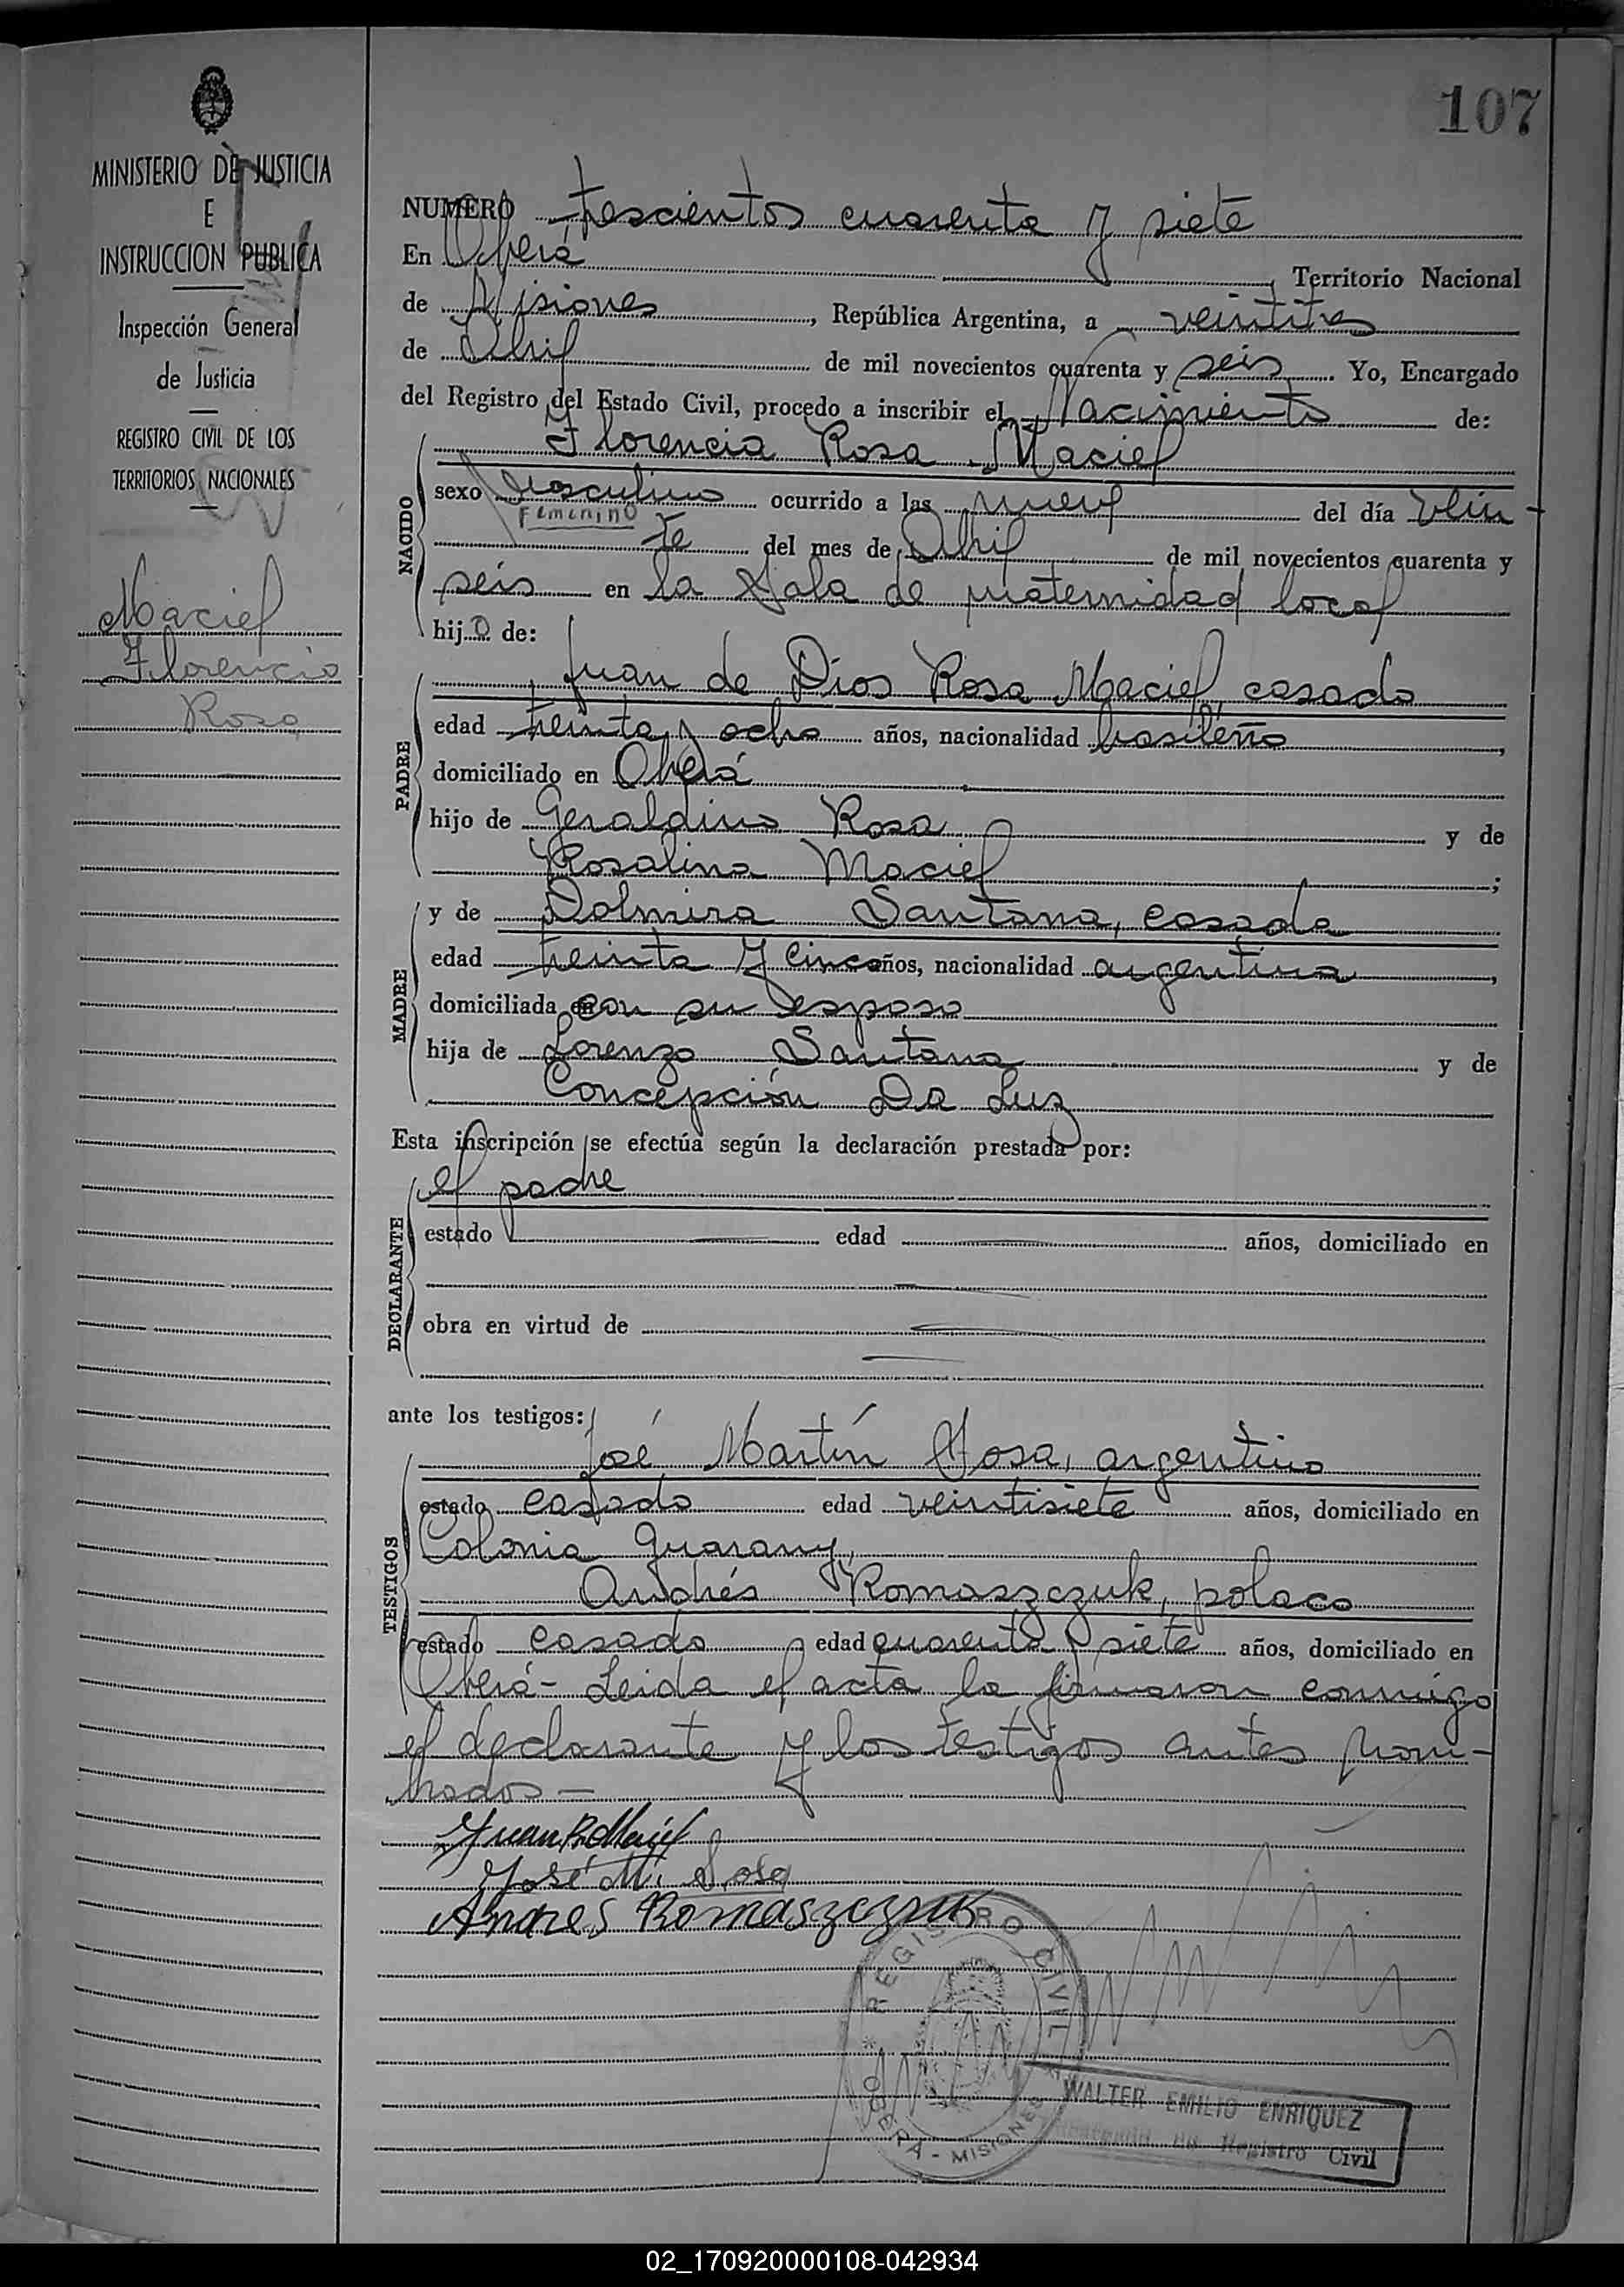 107
MINISTERIO DE JUSTICIA
E
INSTRUCCION PUBLICA
Inspección General
de Justicia
REGISTRO CIVIL DE LOS
TERRITORIOS NACIONALES
Maciel
Florencia
Rosa
NUMERO Trescientos cuarenta y siete
En Oberá, Territorio Nacional
de Misiones, República Argentina, a veintitres
de Abril de mil novecientos cuarenta y seis. Yo, Encargado
del Registro del Estado Civil, procedo a inscribir el Nacimiento de:
NACIDO
Florencia Rosa Maciel
sexo masculino ocurrido a las nueve del día vein-
Femenino
te del mes de Abril de mil novecientos cuarenta y
seis en la Sala de maternidad local
hijo de:
PADRE
Juan de Dios Rosa Maciel, casado
edad treinta y ocho años, nacionalidad brasileño,
domiciliado en Oberá
hijo de Geraldino Rosa y de
Rosalina Maciel;
MADRE
y de Dolmira Santana, casada
edad treinta y cinco años, nacionalidad argentina,
domiciliada en con su esposo
hija de Lorenzo Santana y de
Concepción Da Luz
Esta inscripción se efectúa según la declaración prestada por:
DECLARANTE
el padre
estado — edad — años, domiciliado en
—
obra en virtud de —
—
ante los testigos:
TESTIGOS
José Martín Sosa, argentino
estado casado edad veintisiete años, domiciliado en
Colonia Guarany,
Andrés Romaszczuk, polaco
estado casado edad cuarenta y siete años, domiciliado en
Oberá- Leida el acta la firmaron conmigo
el declarante y los testigos antes nom-
brados—
Juan R Maciel
José M. Sosa
Andres Romaszczuk
REGISTRO CIVIL
OBERA - MISIONES
WALTER EMILIO ENRIQUEZ
Encargado de Registro Civil
02_170920000108-042934